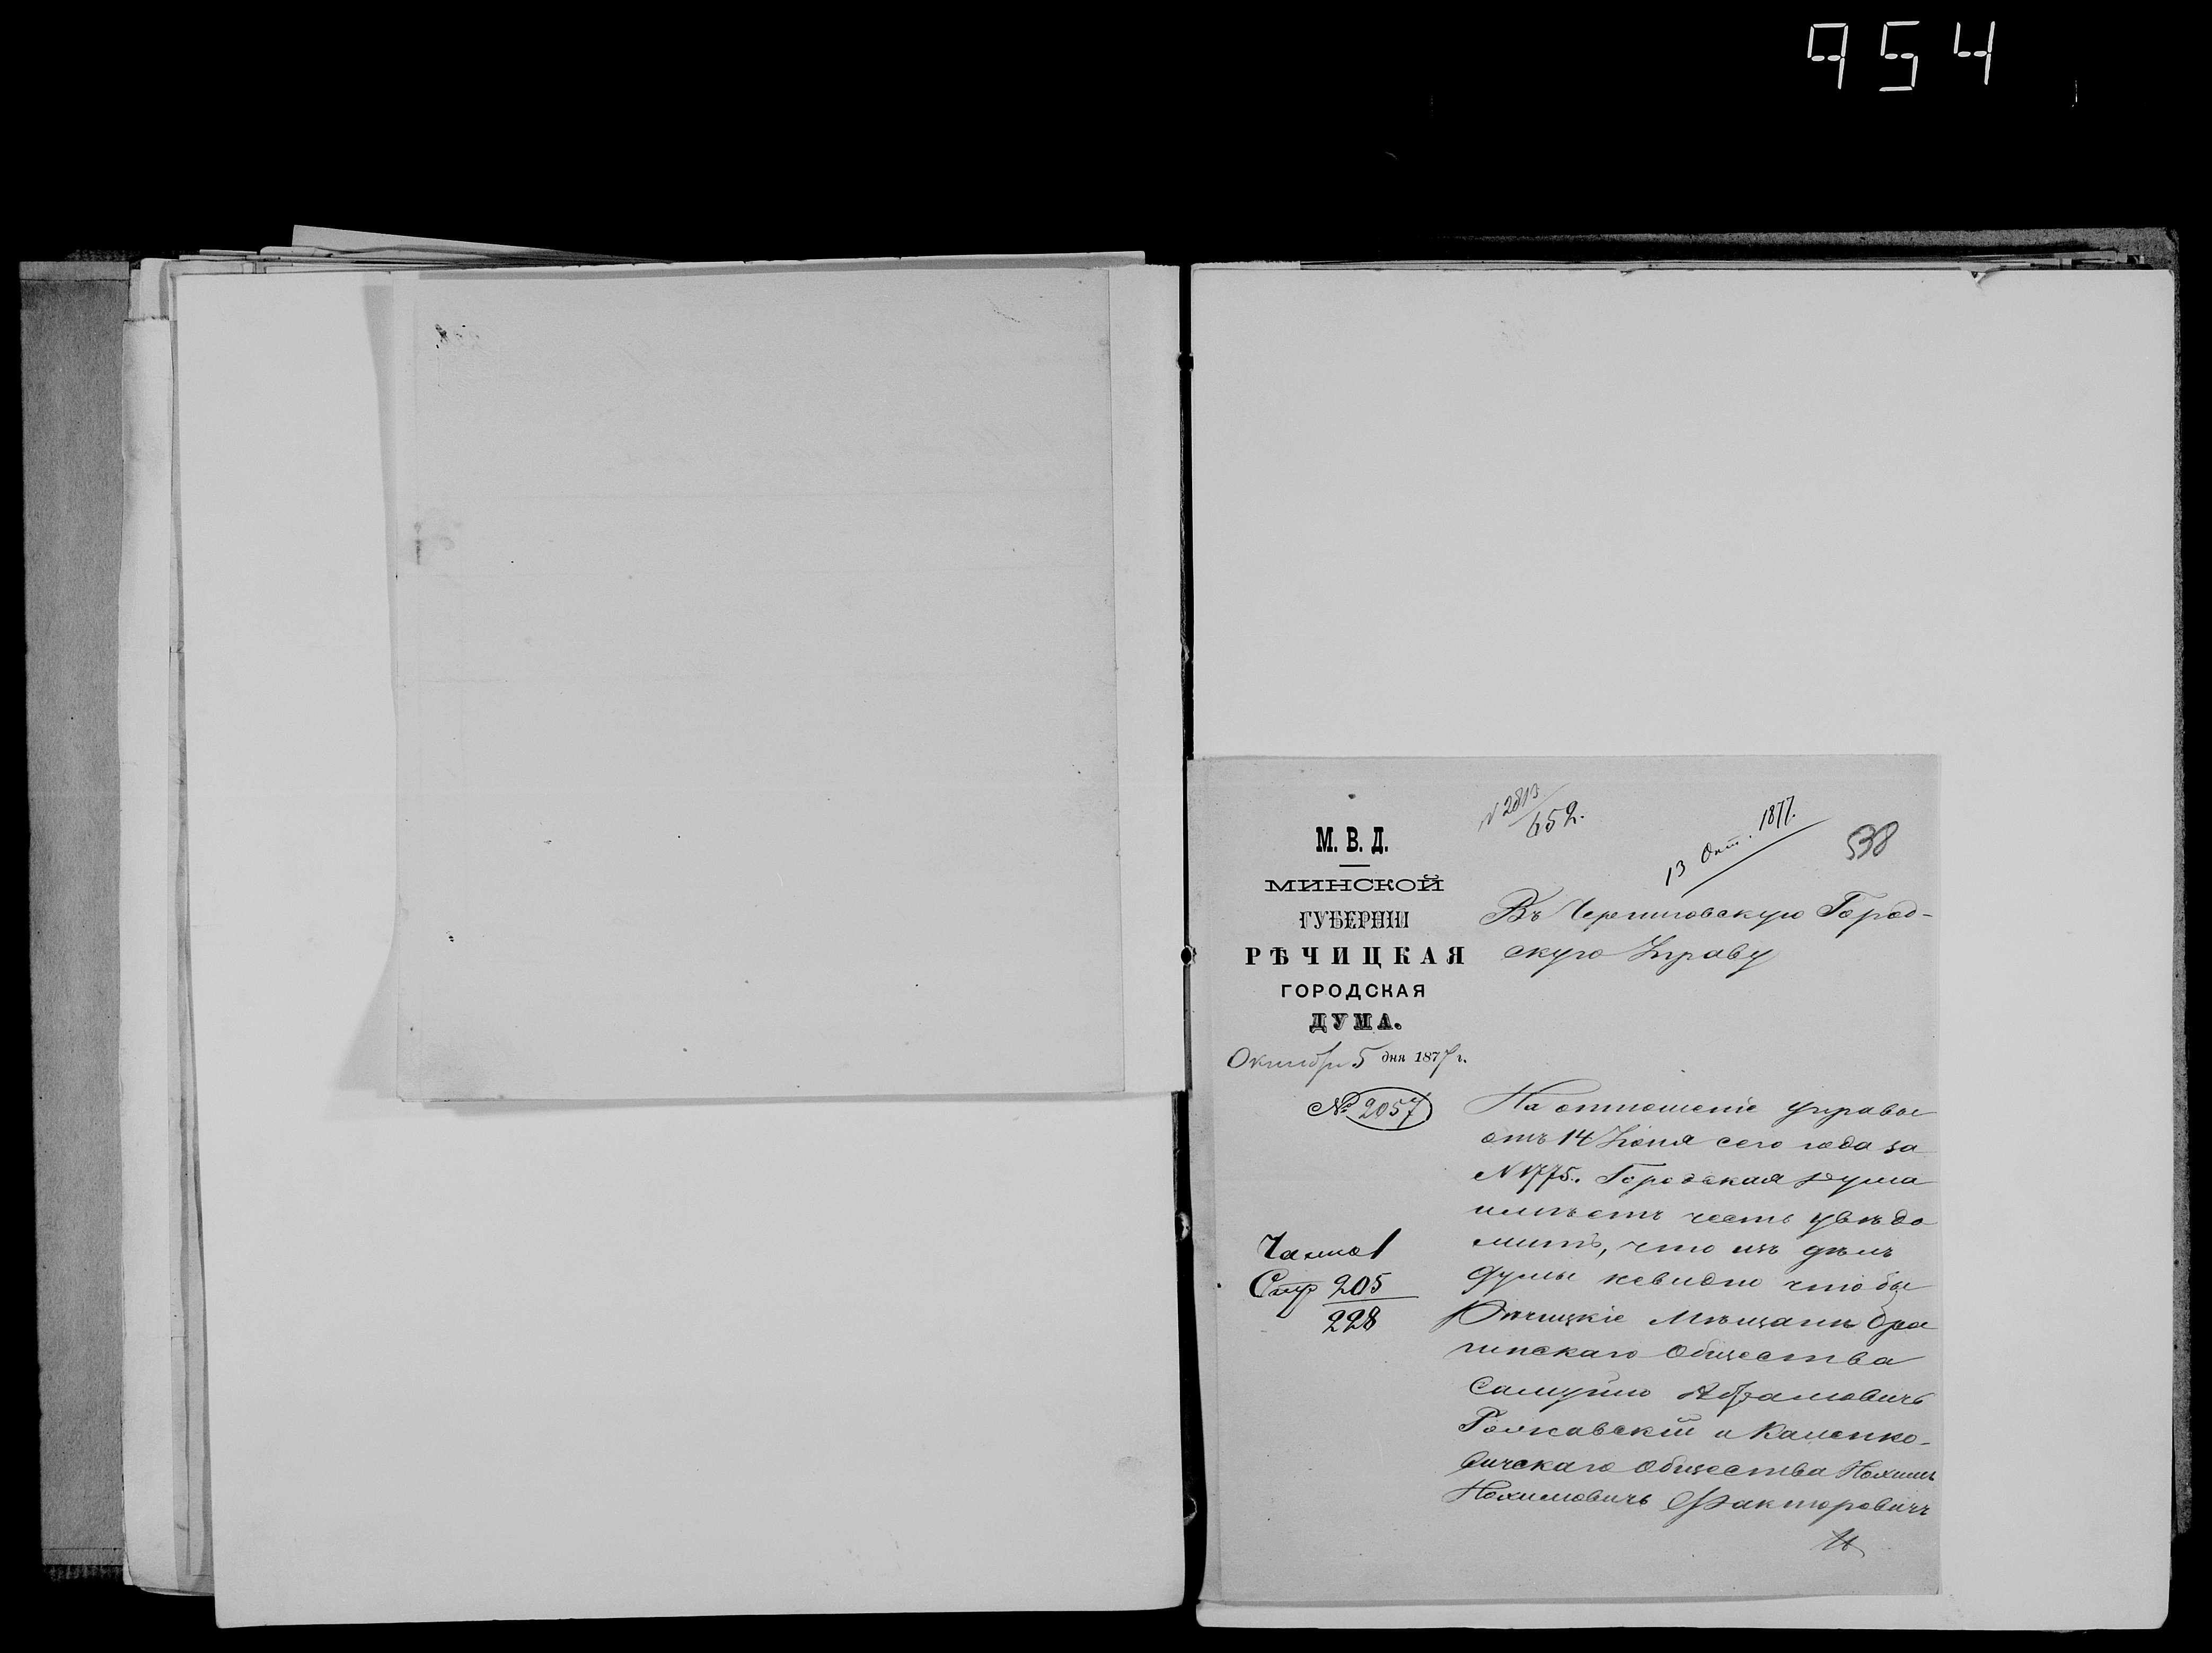 954
М. В. Д.
МИНСКОЙ
ГУБЕРНІИ
РѢЧИЦКАЯ
ГОРОДСКАЯ
ДУМА.
Октября 5 дня 1877 г.
№ 2057
Часть 1
Стр 205
228
N 2813
652.
13 Окт. 1877.
538
Въ Черниговскую Город-
скую Управу
На отношеніе управы
отъ 14 Іюня сего года за
N 1775. Городская Дума
имѣетъ честь увѣдо
мить, что изъ дѣлъ
Думы невидно чтобы
Рѣчицкіе Мѣщане Бра
гинскаго Общества
Самуйло Абрамовичъ
и Каленко-
вичскаго Общества Нохимъ
Нохимовичъ Факторовичъ